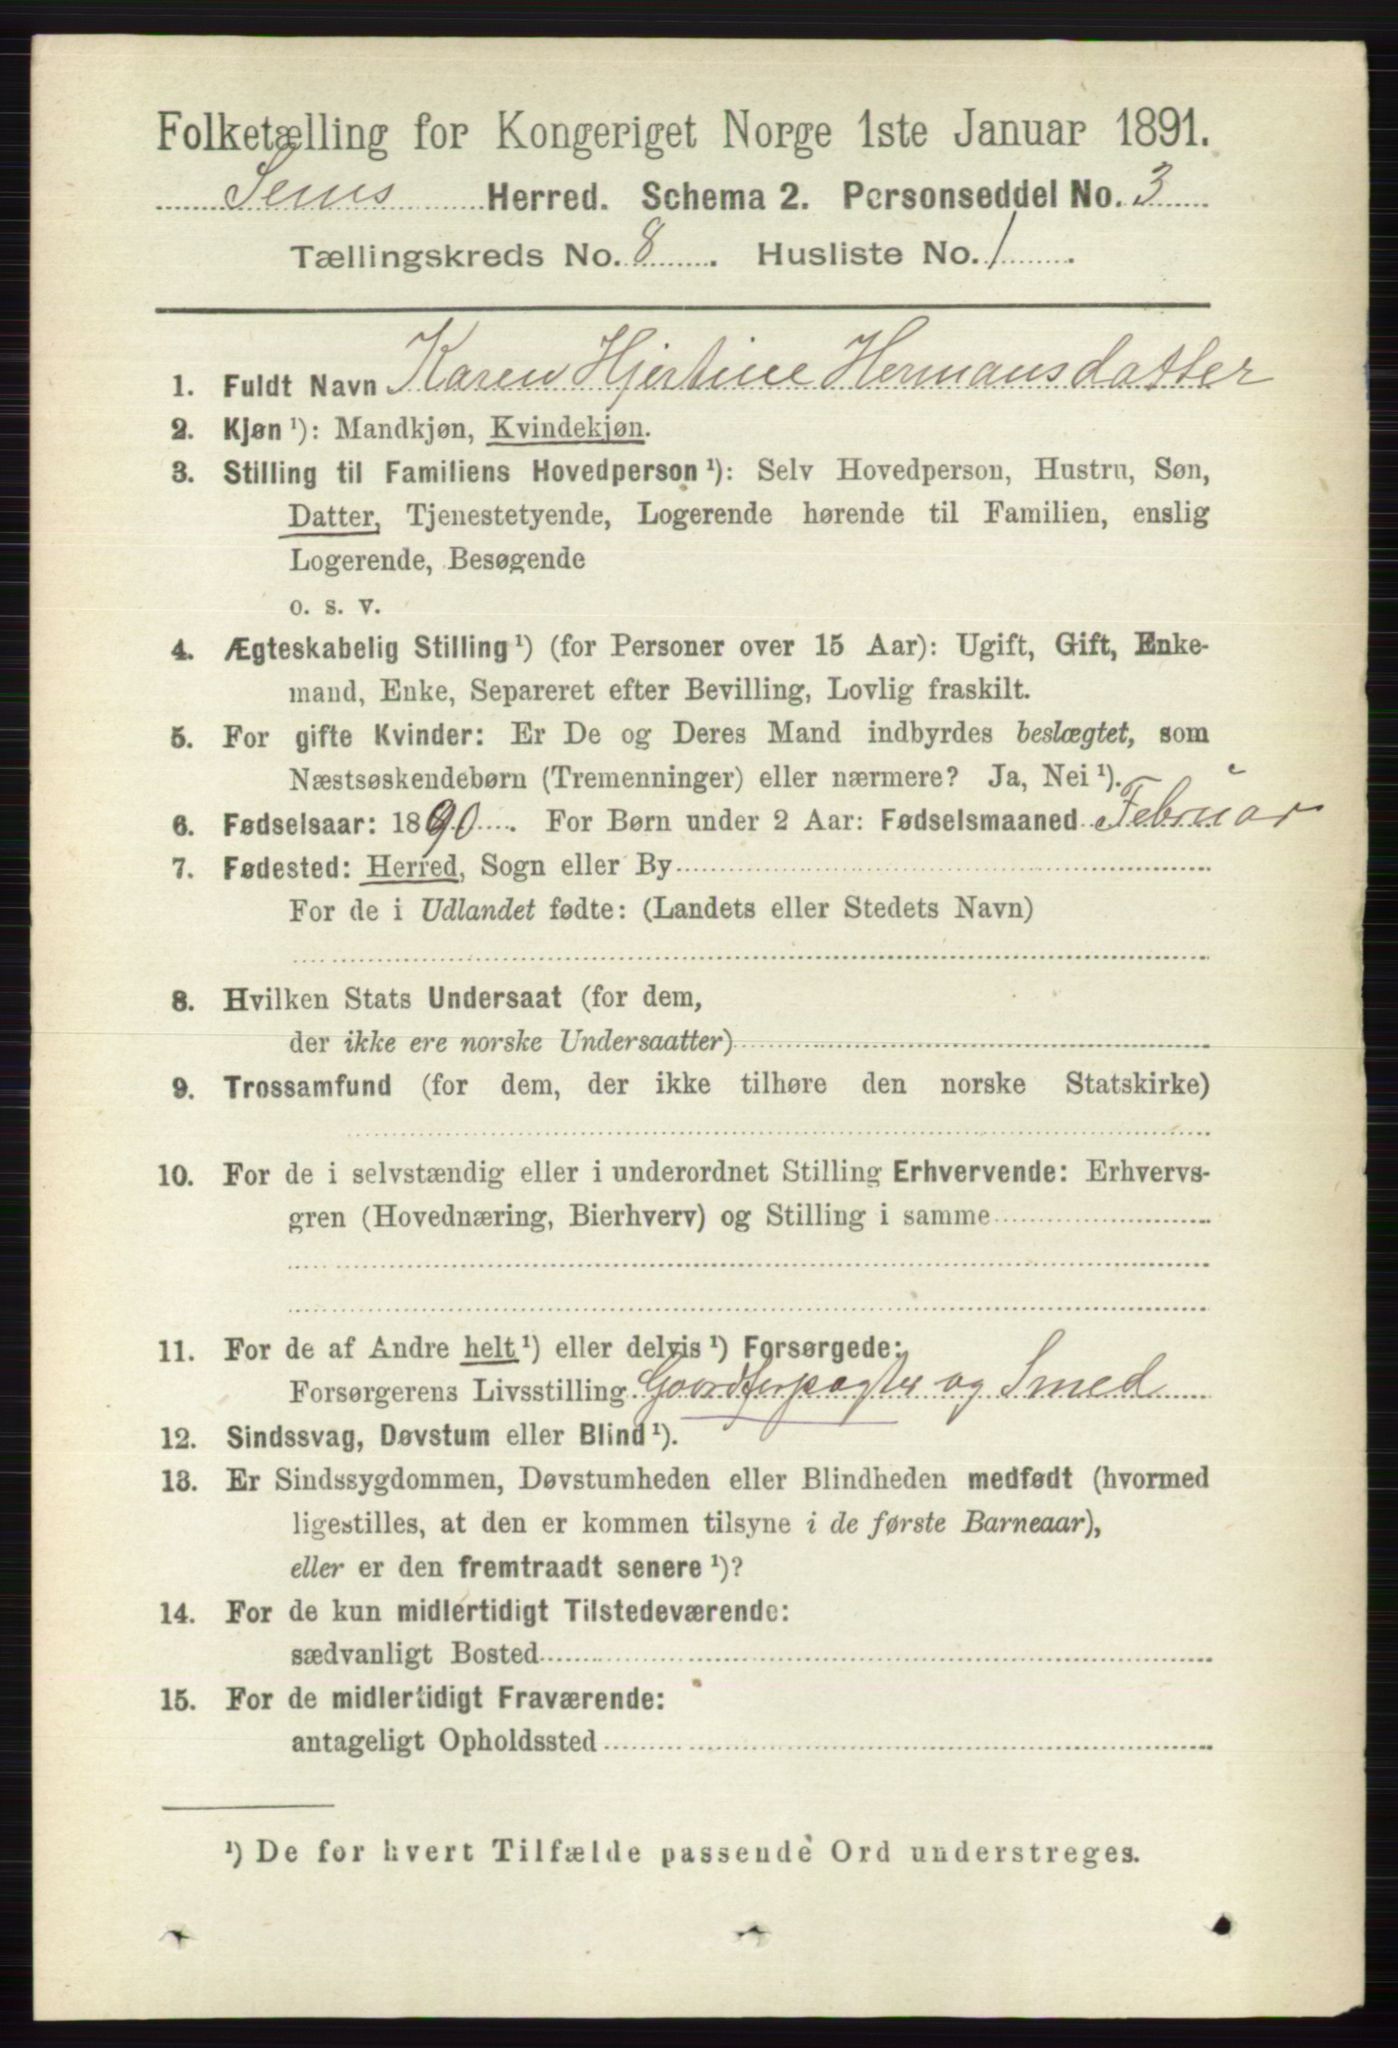 Folketælling for Kongeriget Norge 1ste Januar 1891.
Sems Herred. Schema 2. Personseddel No. 3
Tællingskreds No. 8. Husliste No. 1.
1. Fuldt Navn Karen Hjertine Hermansdatter
2. Kjøn ¹): Mandkjøn, Kvindekjøn.
3. Stilling til Familiens Hovedperson ¹): Selv Hovedperson, Hustru, Søn,
Datter, Tjenestetyende, Logerende hørende til Familien, enslig
Logerende, Besøgende
o. s. v.
4. Ægteskabelig Stilling ¹) (for Personer over 15 Aar): Ugift, Gift, Enke-
mand, Enke, Separeret efter Bevilling, Lovlig fraskilt.
5. For gifte Kvinder: Er De og Deres Mand indbyrdes beslægtet, som
Næstsøskendebørn (Tremenninger) eller nærmere? Ja, Nei ¹).
6. Fødselsaar: 1890. For Børn under 2 Aar: Fødselsmaaned Februar
7. Fødested: Herred, Sogn eller By
For de i Udlandet fødte: (Landets eller Stedets Navn)
8. Hvilken Stats Undersaat (for dem,
der ikke ere norske Undersaatter)
9. Trossamfund (for dem, der ikke tilhøre den norske Statskirke)
10. For de i selvstændig eller i underordnet Stilling Erhvervende: Erhvervs-
gren (Hovednæring, Bierhverv) og Stilling i samme
11. For de af Andre helt ¹) eller delvis ¹) Forsørgede:
Forsørgerens Livsstilling Gaardferpagter og Smed
12. Sindssvag, Døvstum eller Blind ¹).
13. Er Sindssygdommen, Døvstumheden eller Blindheden medfødt (hvormed
ligestilles, at den er kommen tilsyne i de første Barneaar),
eller er den fremtraadt senere ¹)?
14. For de kun midlertidigt Tilstedeværende:
sædvanligt Bosted
15. For de midlertidigt Fraværende:
antageligt Opholdssted
¹) De for hvert Tilfælde passende Ord understreges.